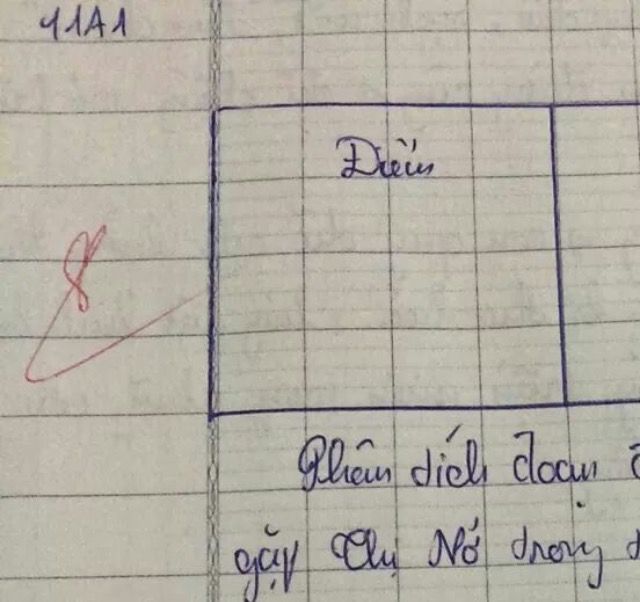 11A1
Điểm
8
Phân tích đoạn
gặp Thị Nở trong